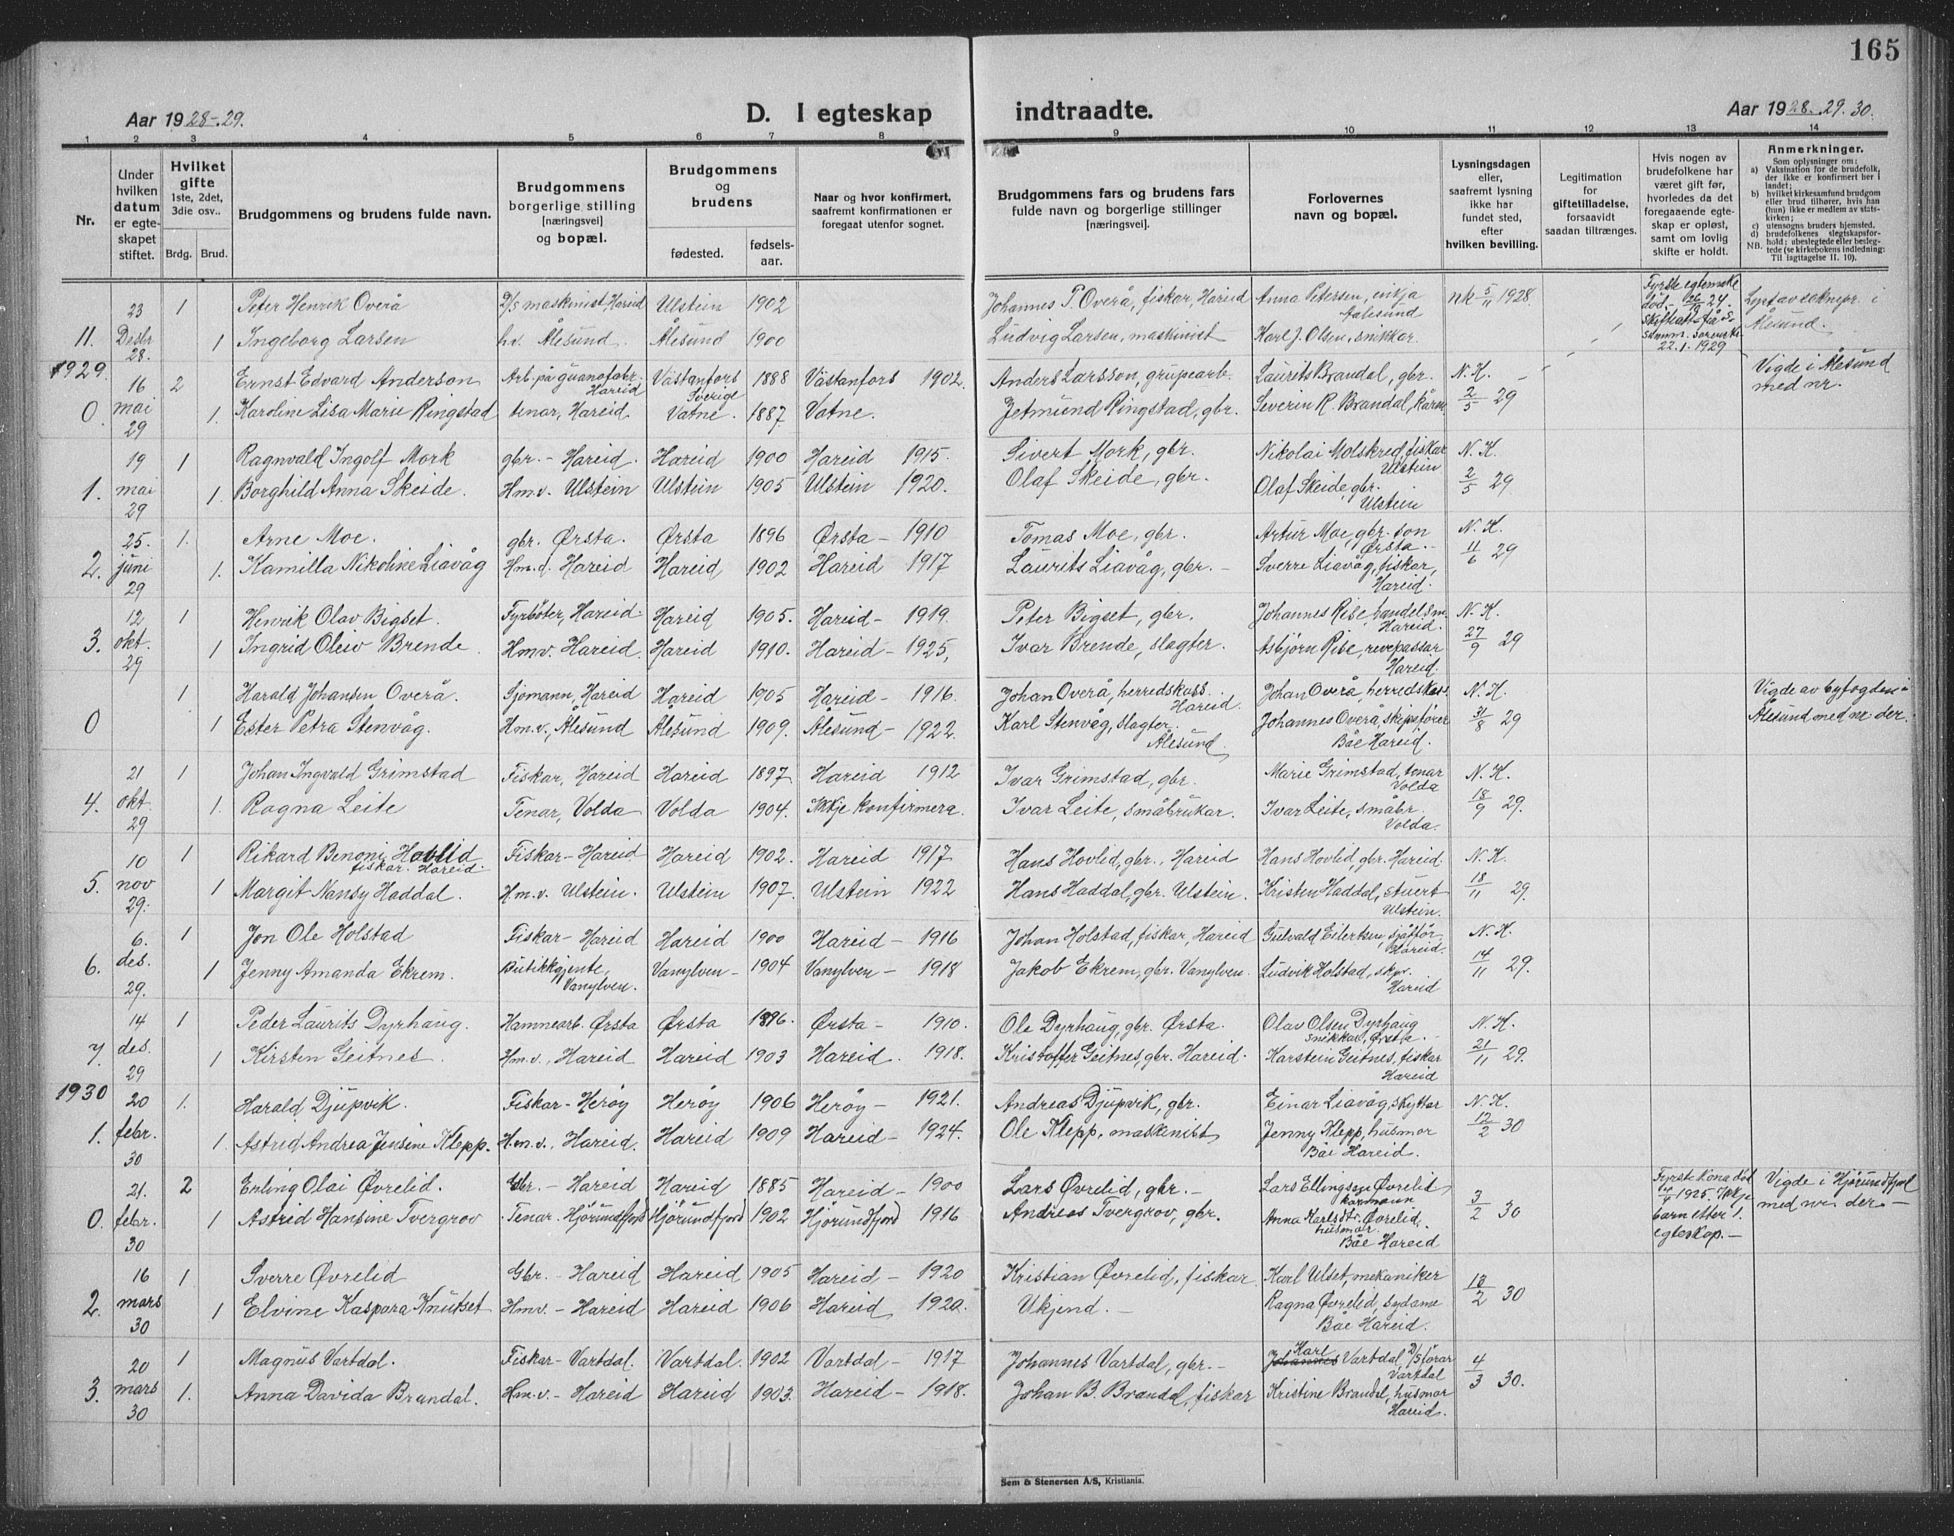 165
Aar 1928-29. D. I egteskap indtraadte. Aar 1928.29.30.
1 2 3 4 5 6 7 8 9 10 11 12 13 14
Nr.
Under hvilken datum er egteskapet stiftet.
Hvilket gifte 1ste, 2det, 3die osv..
Brdg. Brud.
Brudgommens og brudens fulde navn.
Brudgommens borgerlige stilling [næringsvei] og bopæl.
Brudgommens og brudens
fødested. fødselsaar.
Naar og hvor konfirmert, saafremt konfirmationen er foregaat utenfor sognet.
Brudgommens fars og brudens fars fulde navn og borgerlige stillinger [næringsvei].
Forlovernes navn og bopæl.
Lysningsdagen eller, saafremt lysning ikke har fundet sted, efter hvilken bevilling.
Legitimation for giftetilladelse, forsaavidt saadan tiltrænges.
Hvis nogen av brudefolkene har været gift før, hvorledes da det foregaaende egteskap er opløst, samt om lovlig skifte er holdt.
Anmerkninger.
Som oplysninger om:
a) Vaksination for de brudefolk, der ikke er konfirmert her i landet;
b) hvilket kirkesamfund brudgom eller brud tilhører, hvis han (hun) ikke er medlem av statskirken;
c) utensogns bruders hjemsted.
d) brudefolkenes slegtskapsforhold: ubeslegtede eller beslegtede (se kirkebokens indledning:
NB. Til iagttagelse II. 10).
23 1 Peter Henrik Overå D/S maskinist, Hareid Ulstein 1902 Johannes T. Overå, fiskar, Hareid Anna Petersen, enkja Aalesund nk 5/11 1928. Fyrste egtemake död 26/9 24. Lyst av soknepr. i Ålesund.
11. Desbr 28. 1 Ingeborg Larsen hv. Ålesund. Ålesund 1900 Ludvig Larsen, maskinist Karl J. Olsen, snikkar. 22.1.1929
1929.
16 2 Ernst Edvard Anderson Arb. på guanofabr. Hareid Västanfors Sverige 1888 Västanfors 1902. Anders Larsson, grupearb. Laurits Brandal, gbr. N. K. Vigde i Ålesund med nr.
0. mai 29 1. Karoline Lisa Marie Ringstad tenar, Hareid. Vatne. 1887 Vatne. Jetmund Ringstad, gbr. Severin R. Brandal, kårm. 2/5 29
19 1 Ragnvald Ingolf Mork gbr. - Hareid. Hareid 1900 Hareid 1915. Sivert Mork, gbr. Nikolai Molskred, fiskar Ulstein N. K.
1. mai 29 1 Borghild Anna Skeide. Hm.v. Ulstein Ulstein 1905 Ulstein 1920. Olaf Skeide, gbr. Olaf Skeide, gbr. Ulstein 2/5 29
25. 1. Arne Moe. gbr. Ørsta. Ørsta 1896 Ørsta - 1910 Tomas Moe, gbr. Artur Moe, gbr. son Ørsta. N. K.
2. juni 29 1. Kamilla Nikoline Liavåg Hm.d. Hareid Hareid 1902 Hareid 1917 Laurits Liavåg, gbr. - Sverre Liavåg, fiskar, Hareid. 11/6 29
12 1 Henrik Olav Bigset. Fyrböter, Hareid. Hareid 1905. Hareid - 1919. Peter Bigset, gbr. Johannes Rise, handelsm. Hareid. N. K.
3. okt. 29 1 Ingrid Oleiv Brende. Hmv. Hareid. Hareid 1910. Hareid - 1925, Ivar Brende, slagter. Asbjörn Rise, revepasser Hareid. 27/9 29
1 Harald Johansen Overå. Sjömann, Hareid Hareid 1905 Hareid - 1916. Johan Overå, herredskass. Hareid. Johan Overå, herredskass. N. K. Vigde av byfogden i
0 1 Ester Petra Stenvåg. Hm.v., Ålesund Ålesund 1909. Ålesund - 1922. Karl Stenvåg, slagter. Ålesund Johannes Overå, skipsförer Båe Hareid. 31/8 29 Ålesund med nr der.
21 1 Johan Ingvald Grimstad Fiskar, Hareid Hareid 1897 Hareid 1912 Ivar Grimstad, gbr. Marie Grimstad, tenar Volda N. K.
4. okt. 29 1. Ragna Leite Tenar, Volda Volda 1904. Ikkje konfirmera. Ivar Leite, småbrukar. Ivar Leite, småbr. Volda. 18/9 29.
10 1 Rikard Benoni Hovlid fiskar. Hareid. Fiskar - Hareid Hareid 1902. Hareid 1917 Hans Hovlid, gbr., Hareid Hans Hovlid, gbr. Hareid. N. K.
5. nov 29. 1 Margit Nansy Haddal. Hm.v. Ulstein. Ulstein 1907. Ulstein 1922 Hans Haddal, gbr. Ulstein. Kristen Haddal, stuert Ulstein. 18/11 29.
6. 1 Jon Ole Holstad Fiskar - Hareid Hareid 1900 Hareid - 1916 Johan Holstad, fiskar, Hareid Gulvald Eilertsen, sjåfför Hareid. N. K.
6. des. 29. 1 Jenny Amanda Ekrem. Butikkgjente, Vanylven. Vanylven - 1904 Vanylven - 1918 Jakob Ekrem, gbr. Vanylven. Ludvik Holstad, skpr. Hareid 14/11 29.
14 1 Peder Laurits Dyrhaug. Hamnearb. Ørsta Ørsta 1896. Ørsta - 1910. Ole Dyrhaug, gbr. Ørsta. Olav Olsen Dyrhaug snikkar, Ørsta. N. K.
7. des. 29 1 Kirsten Geitnes. Hm.v., Hareid Hareid 1903 Hareid. 1918. Kristoffer Geitnes, gbr. Hareid. Karstein Geitnes, fiskar Hareid 21/11 29.
1930
20 1. Harald Djupvik. Fiskar - Herøy Herøy 1906 Herøy - 1921. Andreas Djupvik, gbr. Einar Liavåg, skytter N. K.
1. febr. 30 1. Astrid Andrea Jensine Klepp. Hm.v., Hareid. Hareid 1909 Hareid - 1924. Ole Klepp, maskinist Jenny Klepp, husmor Båe Hareid. 12/2 30
21. 2 Erling Olai Øvrelid. Gbr. - Hareid Hareid 1885 Hareid - 1900 Lars Øvrelid, gbr. - Lars Ellingsen Øvrelid kårmann Fyrste kona död 14/9 1925. Ikkje barn etter 1. egteskap. - Vigde i Hjørundfjord med nr der -
0. febr. 30 1 Astrid Hansine Tvergrov Tenar. Hjørundfjord Hjørundfjord 1902 Hjørundfjord 1916 Andreas Tvergrov, gbr. Anna Karlsdtr. Øvrelid, husmor. Båe Hareid 3/2 30
16 1. Sverre Øvrelid Gbr. - Hareid Hareid 1905 Hareid - 1920 Kristian Øvrelid, fiskar Karl Ulset, mekaniker
2. mars 30 1 Elvine Kaspara Knutset Hmv. - Hareid Hareid 1906 Hareid 1920. Ukjend. - Ragna Øvrelid, sydame Båe Hareid. 18/2 30
20 1 Magnus Vartdal. Fiskar - Vartdal. Vartdal. 1902 Vartdal - 1917 Johannes Vartdal, gbr. - Karl Johannes Vartdal, D/S förar Vartdal
3. mars 30 1. Anna Davida Brandal. Hm.v. - Hareid Hareid 1903. Hareid - 1918. Johan B. Brandal, fiskar Kristine Brandal, husmor Hareid. 4/3 30.
Sem & Stenersen A/S, Kristiania.